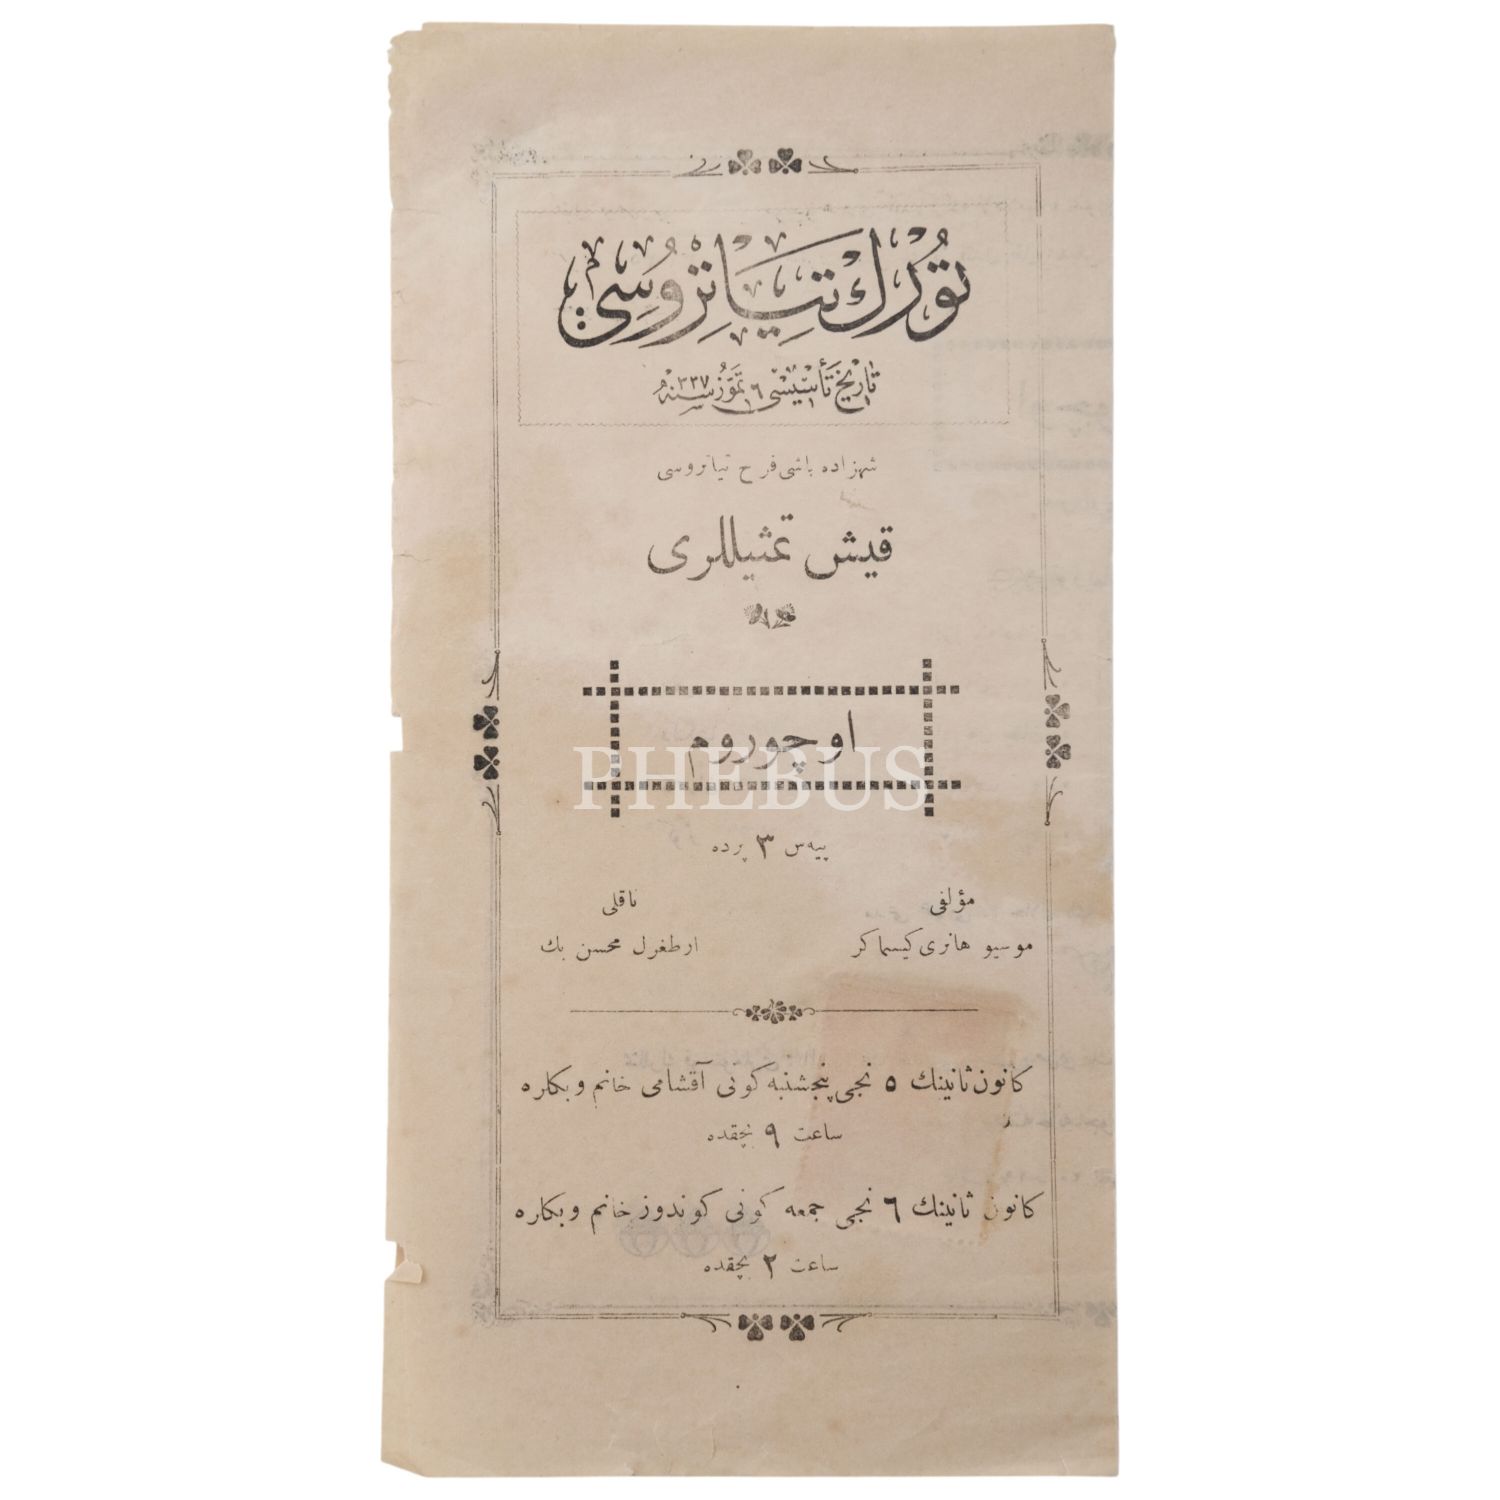 تورك تياتروسی
تاريخ تأسيسی ١٦ تموز سنه ٣٣٧
شهزاده باشی فرح تياتروسی
قيش تمثيللری
اوچوروم
PHEBUS
پيه‌س ٣ پرده
مؤلفی
ناقلی
موسيو هانری كيستماكر
ارطغرل محسن بك
كانون ثانينك ٥ نجی پنجشنبه كونی آقشامی خانم و بكلره
ساعت ٩ بچقده
كانون ثانينك ٦ نجی جمعه كونی كوندوز خانم و بكلره
ساعت ٢ بچقده